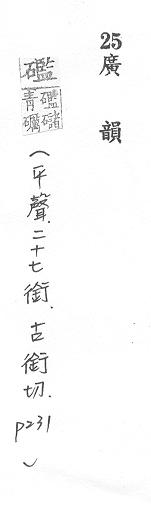 25 廣韻
礛 礛䃴青礪（平聲．二十七銜．古銜切．p231）